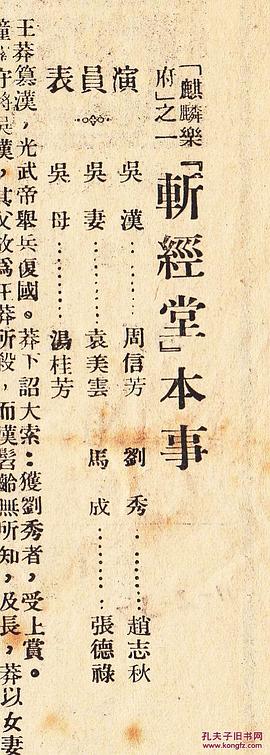 「麒麟樂
府」之一
「斬經堂」本事
演員表
吳漢………周信芳 劉秀………趙志秋
吳妻………袁美雲 馬成………張德祿
吳母………湯桂芳
王莽篡漢，光武帝舉兵復國。莽下詔大索：獲劉秀者，受上賞。
潼 守將吳漢，其父故爲王莽所殺，而漢髫齡無所知，及長，莽以女妻
孔夫子旧书网
www.kongfz.com